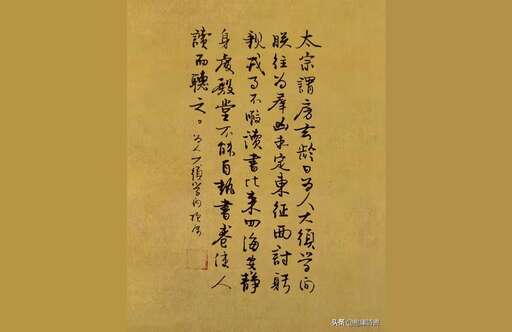 太宗謂房玄齡曰為人大須學問
朕往為羣凶未定東征西討躬
親戎事不暇讀書比來四海安靜
身處殿堂不能自執書卷使人
讀而聽之
為人大須學問
头条